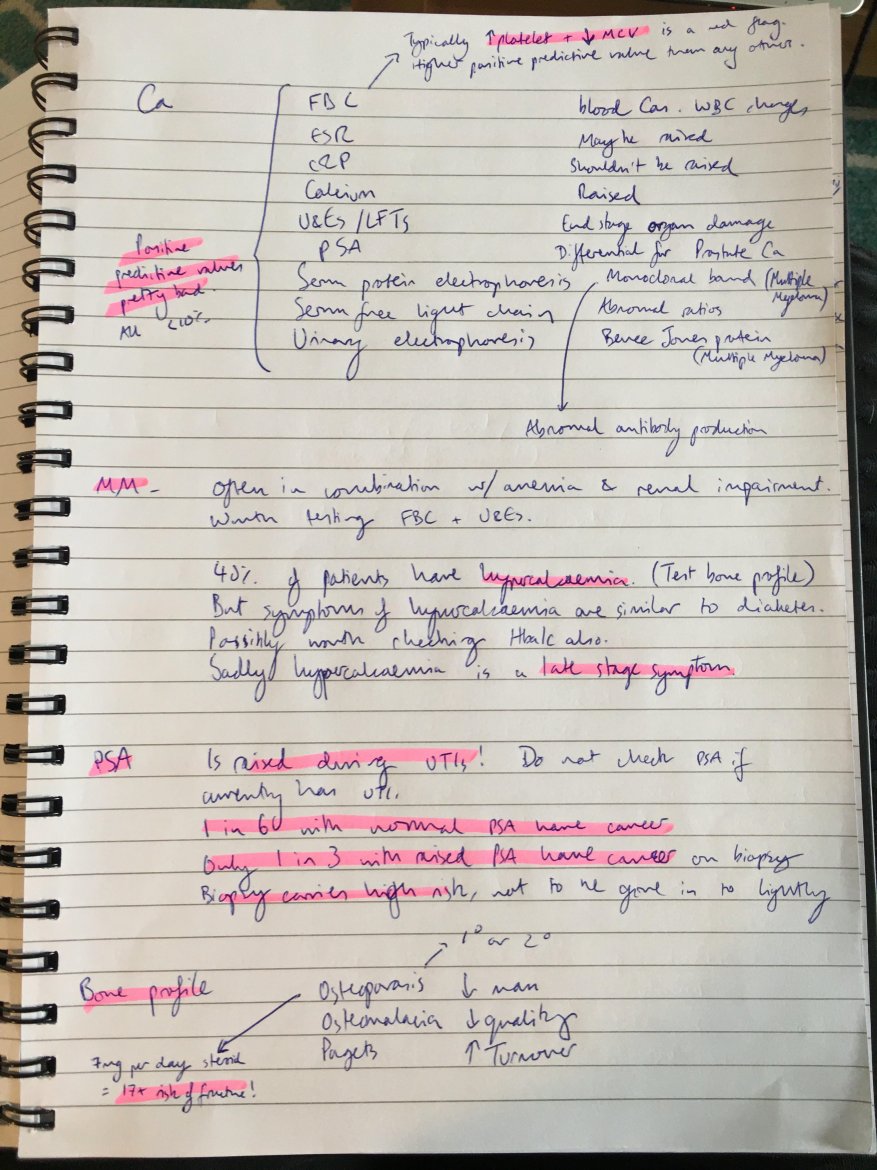 Typically ↑platelet + ↓ MCV is a red flag.
Higher positive predictive value than any other.
Ca
FBC blood Can. WBC changes
ESR May be raised
CRP Shouldn't be raised
Calcium Raised
U&Es / LFTs End stage organ damage
PSA Differential for Prostate Ca
Serum protein electrophoresis Monoclonal band (Multiple Myeloma)
Serum free light chains Abnormal ratios
Urinary electrophoresis Bence Jones protein
(Multiple Myeloma)
Positive
predictive values
pretty bad.
All <10%
Abnormal antibody production
MM - often in combination w/ anemia & renal impairment.
Worth testing FBC + U&Es.
40% of patients have hypercalcaemia. (Test bone profile)
But symptoms of hypercalcaemia are similar to diabetes.
Possibly worth checking Hba1c also.
Sadly hypercalcaemia is a late stage symptom.
PSA Is raised during UTIs! Do not check PSA if
currently has UTI.
1 in 60 with normal PSA have cancer
Only 1 in 3 with raised PSA have cancer on biopsy
Biopsy carries high risk, not to be gone in to lightly
1° or 2°
Bone profile Osteoporosis ↓ mass
Osteomalacia ↓ quality
Pagets ↑ Turnover
7mg per day steroid
= 17x risk of fracture!